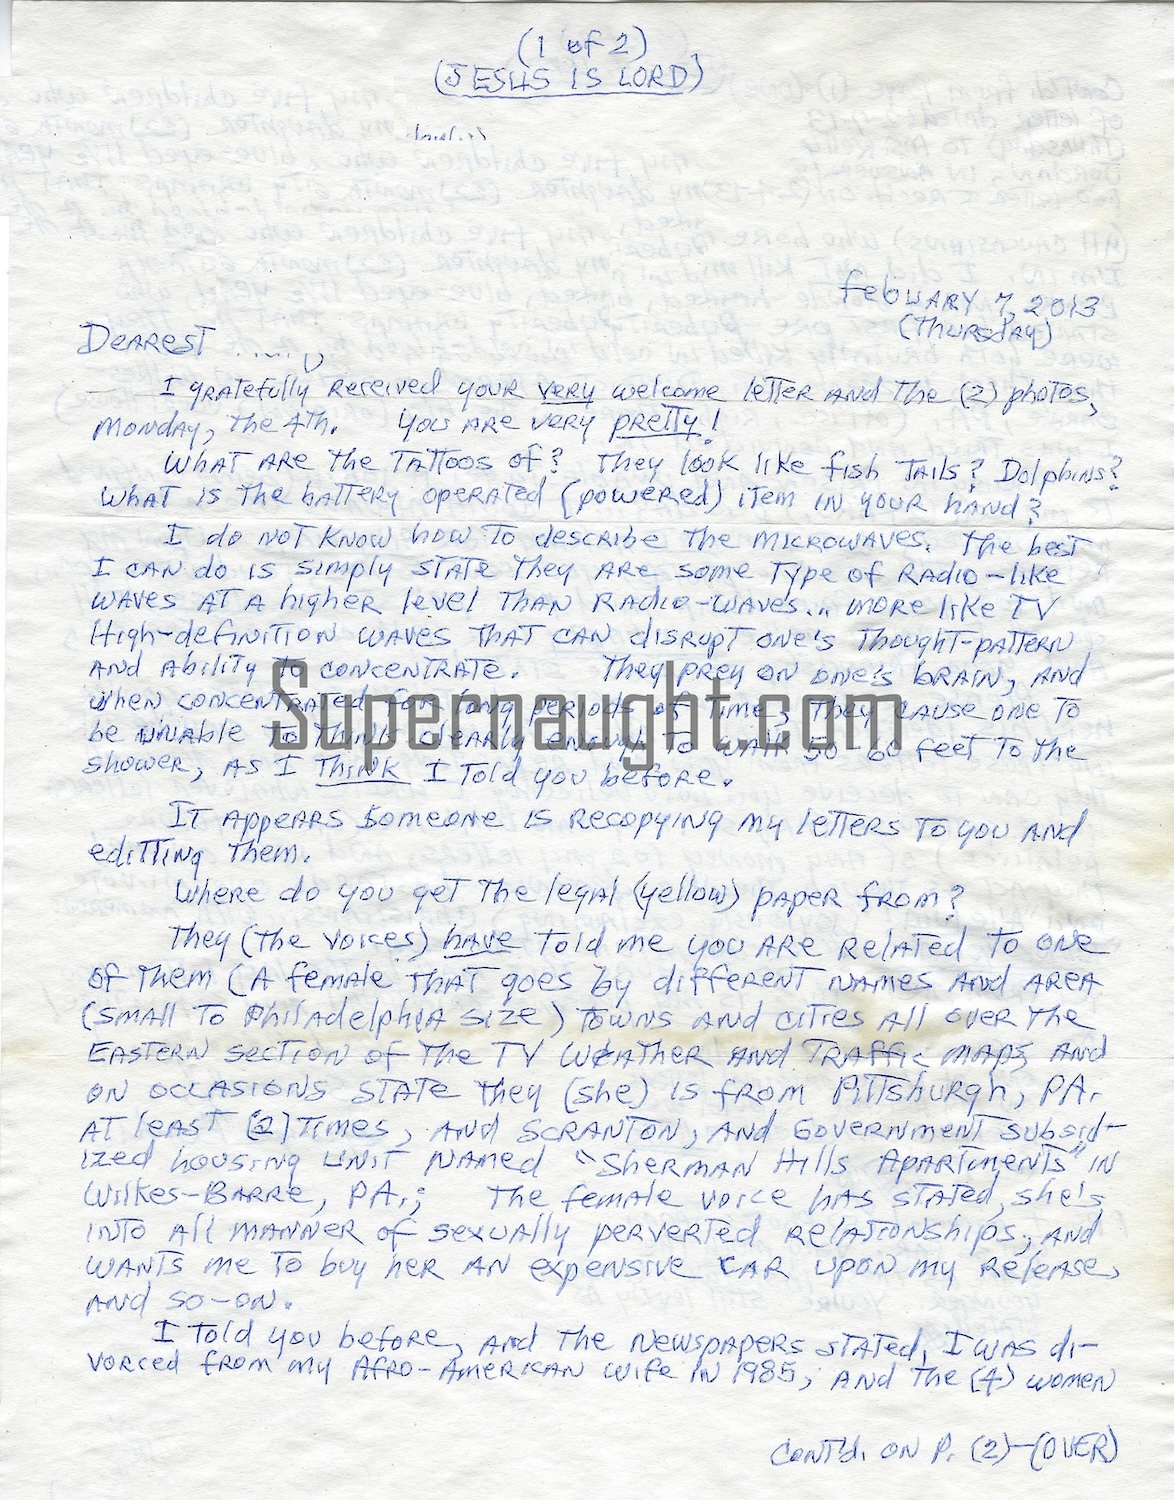 (1 of 2)
(JESUS IS LORD)
FebUARY 7, 2013
(Thursday)
Dearest
I gratefully received your very welcome letter and the (2) photos,
Monday, the 4th. You are very pretty!
What are the tattoos of? They look like fish tails? Dolphins?
What is the battery operated (powered) item in your hand?
I do not know how to describe the microwaves. The best
I can do is simply state they are some type of radio-like
waves at a higher level than radio-waves... more like TV
High-definition waves that can disrupt one's thought-pattern
and ability to concentrate. They prey on one's brain, and
when concentrated for long periods of time, they cause one to
be unable to think clearly enough to walk 50 60 feet to the
shower, as I think I told you before.
Supernaught.com
It appears someone is recopying my letters to you and
editting them.
Where do you get the legal (yellow) paper from?
They (the voices) have told me you are related to one
of them (a female that goes by different names and area
(small to Philadelphia size) towns and cities all over the
Eastern section of the TV weather and traffic maps, and
on occasions state they (she) is from Pittsburgh, PA.
at least (2) times, and Scranton, and Government subsid-
ized housing unit named "Sherman Hills Apartments" in
Wilkes-Barre, PA.; The female voice has stated, she's
into all manner of sexually perverted relationships, and
wants me to buy her an expensive car upon my release,
and so-on.
I told you before, and the newspapers stated, I was di-
vorced from my Afro-American wife in 1985, and the (4) women
Cont'd. on P. (2)-(OVER)